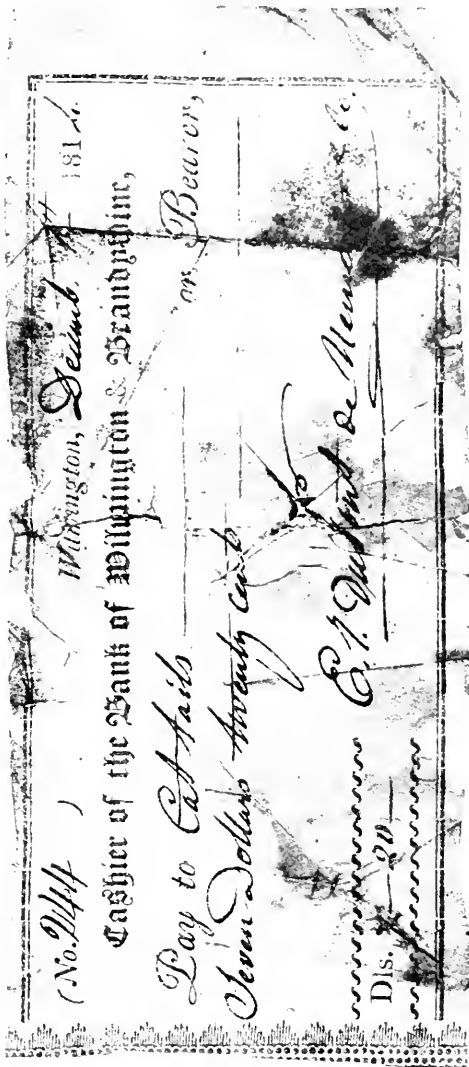 (No. 244 ) Wilmington, Decemb. 181
Cashier of the Bank of Wilmington & Brandywine,
Pay to Cat tails or Bearer,
Seven Dollars twenty cents
Dls. 7—20 E. I. DuPont de Nemours & Co.